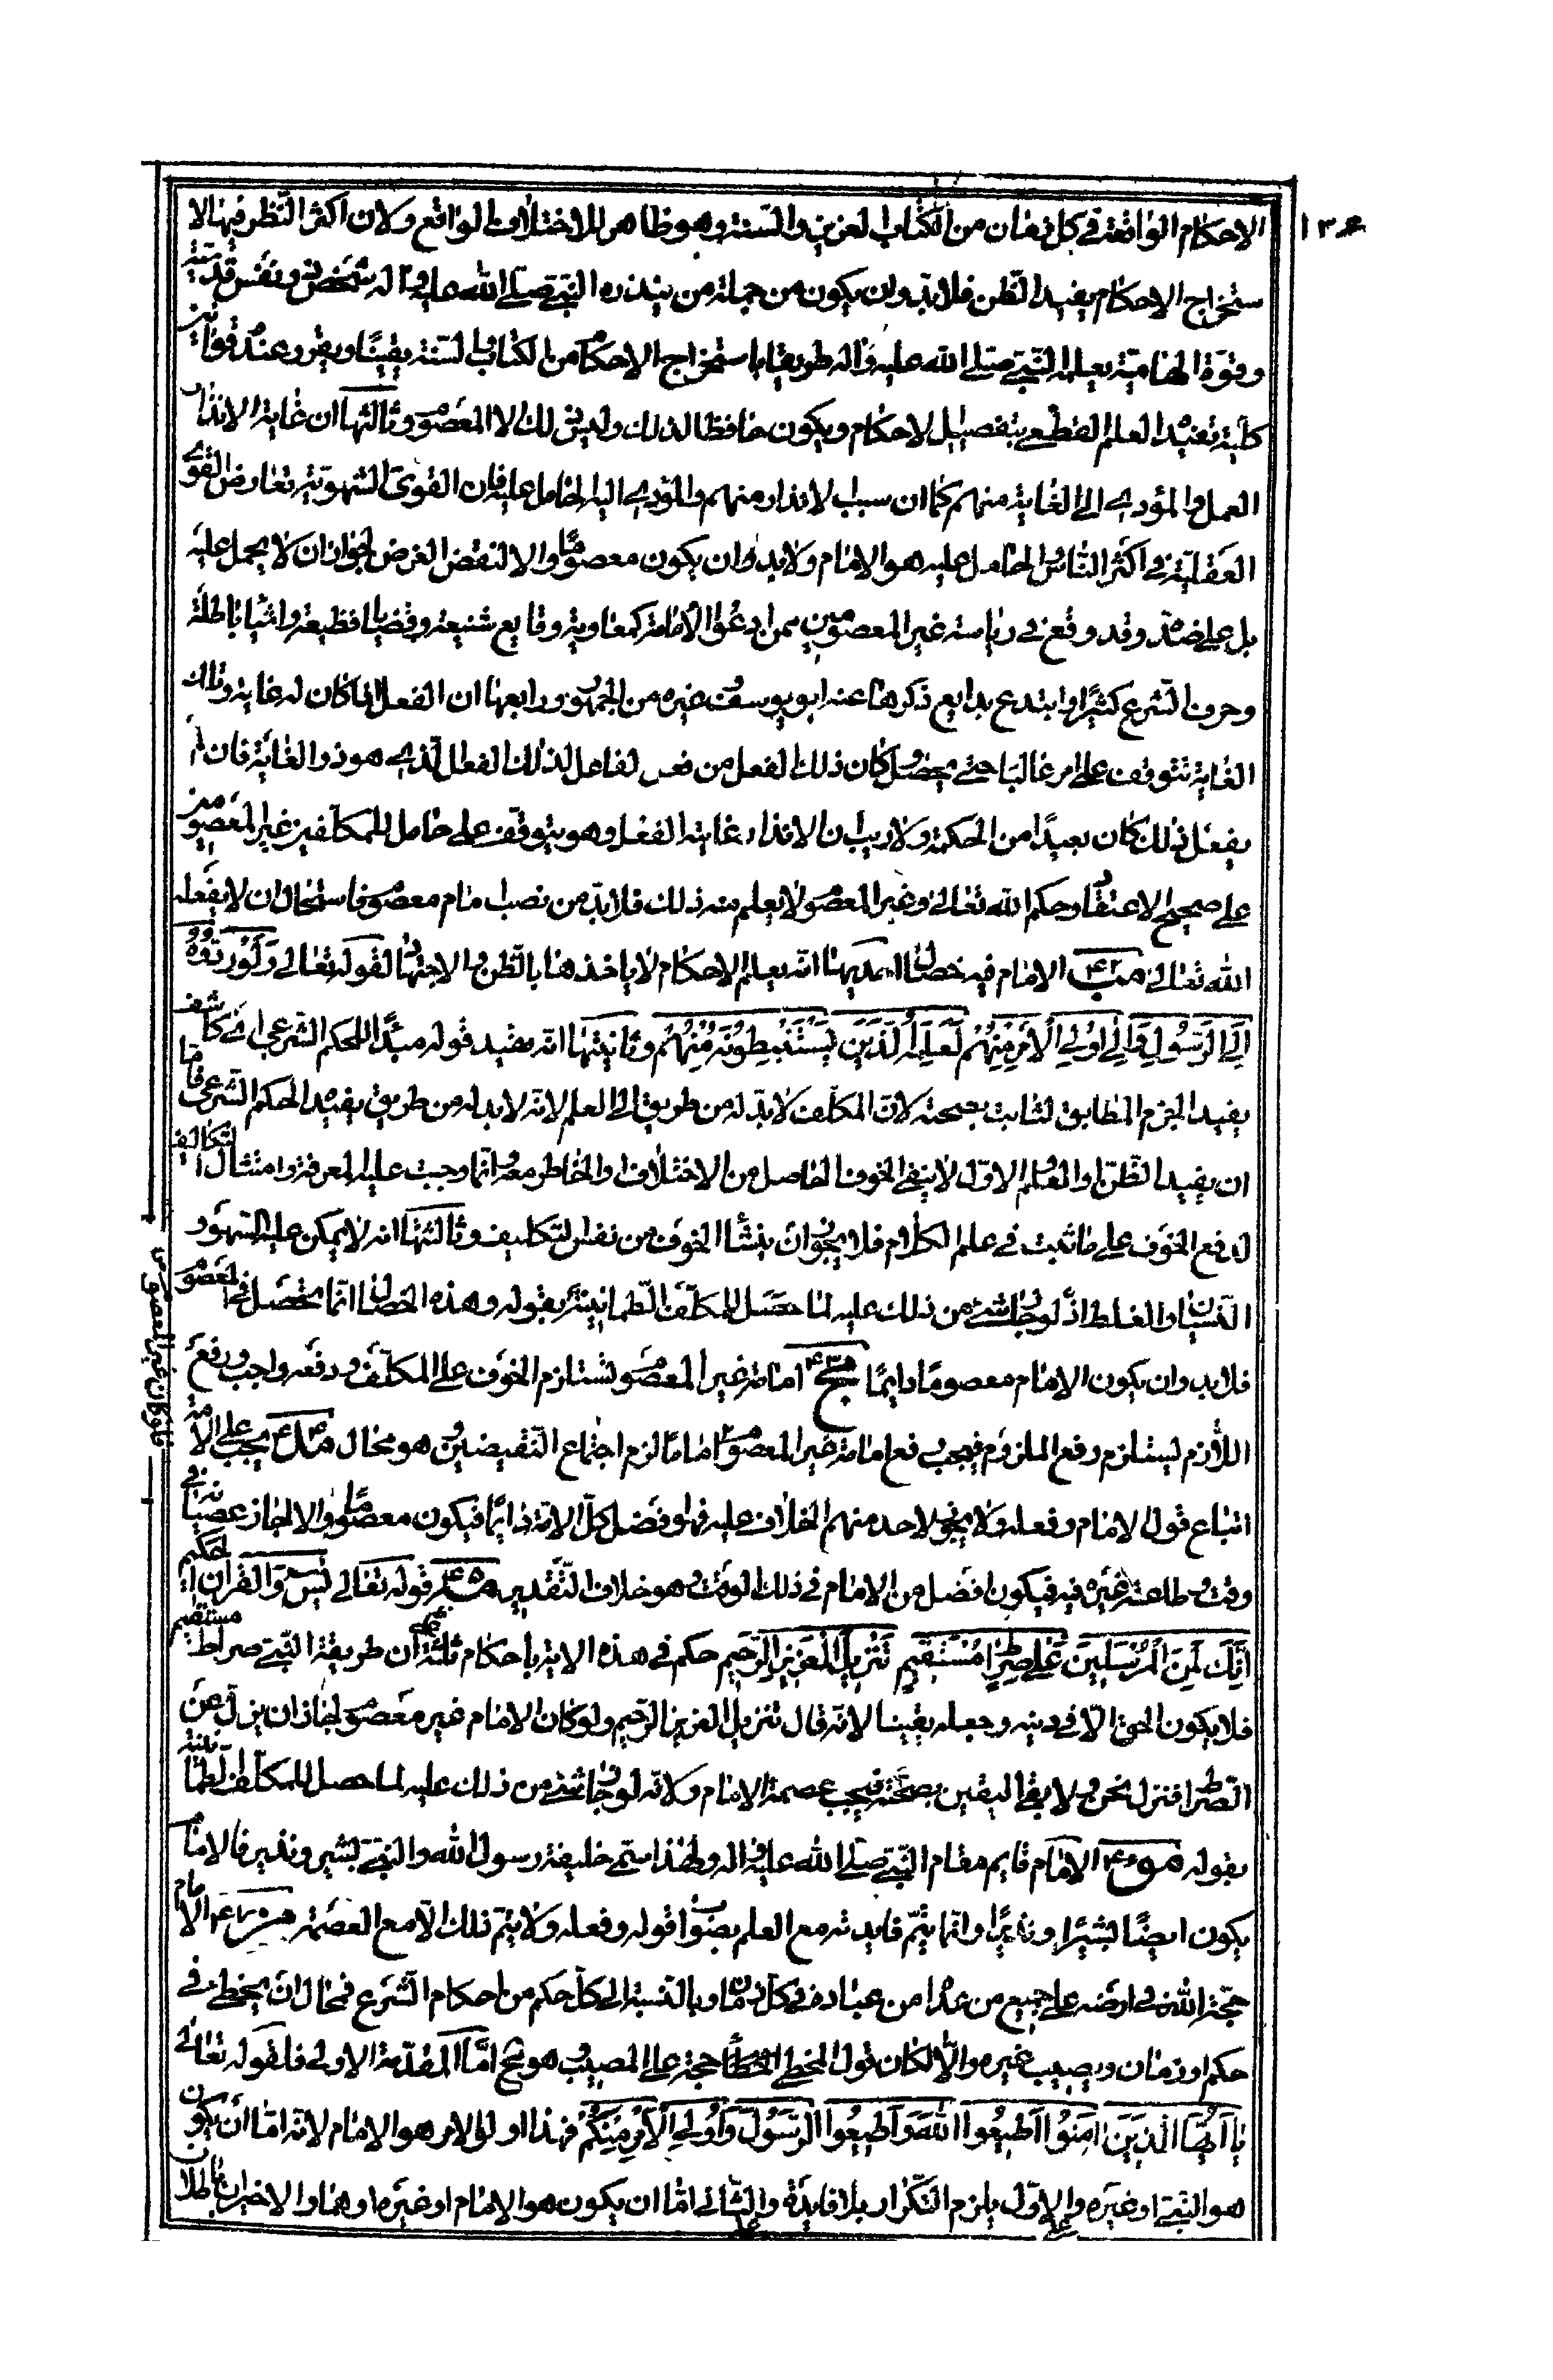 ١٣٤
الاحكام الواقعة في كل زمان من الكتاب العزيز والسنة وهو ظاهر للاختلاف الواقع ولان اكثر النظر فيها لا
ستخراج الاحكام يفيد الظن فلابد وان يكون من جملة من ينذره النبي صلى الله عليه واله شخص ذو نفس قدسية
وقوة الهامية يعلمه النبي صلى الله عليه واله طريقا باستخراج الاحكام من الكتاب والسنة يقينا ويقرر عنده قوانين
كلية تفيده العلم القطعي بتفصيل الاحكام ويكون حافظا لذلك وليس ذلك الا المعصوم وثالثها ان غاية الانذار
العمل والمؤدي الى الغاية منهم كما ان سبب الانذار منهم والمؤدي اليه الحامل عليه فان القوى الشهوية تعارض القوى
العقلية في اكثر الناس والحامل عليه هو الامام ولابد وان يكون معصوما والا لنقض الغرض لجواز ان لا يحمل عليه
بل على ضده وقد وقع في رياسة غير المعصومين ممن ادعوا الامامة كمعاوية وقايع شنيعة وقضايا فظيعة واشيا باطلة
وحرف الشرع كثيرا وابتدع بدايع ذكرها عنه ابو يوسف وغيره من الجمهور ورابعها ان الفعل اذا كان له غاية وتلك
الغاية تتوقف على امر غالبا حتى يحصل وكان ذلك الفعل من فعل الفاعل لذلك الفعل الذي هو ذو الغاية فان لم
يفعل ذلك كان بعيدا من الحكمة ولا ريب ان الانذار غاية الفعل وهو يتوقف على حامل للمكلفين غير المعصومين
على صحيح الاعتقاد وحكم الله تعالى وغير المعصوم لا يعلم منه ذلك فلابد من نصب امام معصوم فاستحال ان لا يفعله
الله تعالى مب ٤٢ الامام فيه خصال احديها انه يعلم الاحكام لا ياخذها بالظن والاجتهاد لقوله تعالى ولو ردوه
الى الرسول والى اولي الامر منهم لعلمه الذين يستنبطونه منهم وثانيتها انه يفيد قوله مبدأ للحكم الشرعي اي كاشف
يفيد الجزم المطابق الثابت بصحته لان المكلف لابد له من طريق الى العلم لانه لابد له من طريق يفيده الحكم الشرعي فاما
ان يفيد الظن او العلم والاول لا ينفي الخوف الحاصل من الاختلاف والخاطر معه وانما وجبت عليه المعرفة وامتثال التكاليف
لدفع الخوف على ما ثبت في علم الكلام فلا يجوز ان ينشأ الخوف من نفس التكليف وثالثتها انه لا يمكن عليه السهو و
النسيان والغلط اذ لو جاز شئ من ذلك عليه لما حصل للمكلف الطمانينة بقوله وهذه الخصال انما تحصل في المعصوم
فلابد وان يكون الامام معصوما دايما مج ٤٣ امامة غير المعصوم تستلزم الخوف على المكلف ودفعه واجب ورفع
اللازم يستلزم رفع الملزوم فيجب رفع امامة غير المعصوم اماما لزم اجتماع النقيضين وهو محال مد ٤٤ يجب على الامة
اتباع قول الامام وفعله ولا يجوز لاحد منهم الخلاف عليه فهو افضل كل الامة دايما فيكون معصوما والا لجاز عصيانه في
وقت وطاعة غيره فيه فيكون افضل من الامام في ذلك الوقت وهو خلاف التقدير مه ٤٥ قوله تعالى يس والقران الحكيم
انك لمن المرسلين على صراط مستقيم تنزيل العزيز الرحيم حكم في هذه الاية باحكام ثلثة ان طريقة النبي صراط مستقيم
فلا يكون الحق الا في دينه وجعله يقينا لانه قال تنزيل العزيز الرحيم ولو كان الامام غير معصوم لجاز ان يزل عن
الصراط فنزل نحن ولا يبقى اليقين بصحته فيجب عصمة الامام ولانه لو جاز شئ من ذلك عليه لما حصل للمكلف الطمانينة
بقوله مو ٤٦ الامام قايم مقام النبي صلى الله عليه واله ولهذا سمي خليفة رسول الله والنبي بشير ونذير فالامام
يكون ايضا بشيرا ونذيرا وانما يتم فايدته مع العلم بصواب قوله وفعله ولا يتم ذلك الا مع العصمة مز ٤٧ الامام
حجة الله في ارضه على جميع من عدا من عباده في كل زمان وبالنسبة الى كل حكم من احكام الشرع فمحال ان يخطئ في
حكم او زمان ويصيب غيره والا لكان قول المخطئ الخطأ حجة على المصيب وهو مح اما المقدمة الاولى فلقوله تعالى
يا ايها الذين امنوا اطيعوا الله واطيعوا الرسول واولي الامر منكم فهذا اولو الامر هو الامام لانه اما ان يكون
هو النبي او غيره والاول يلزم التكرار بلا فايدة والثاني اما ان يكون هو الامام او غيره او هما والاخيران باطلان